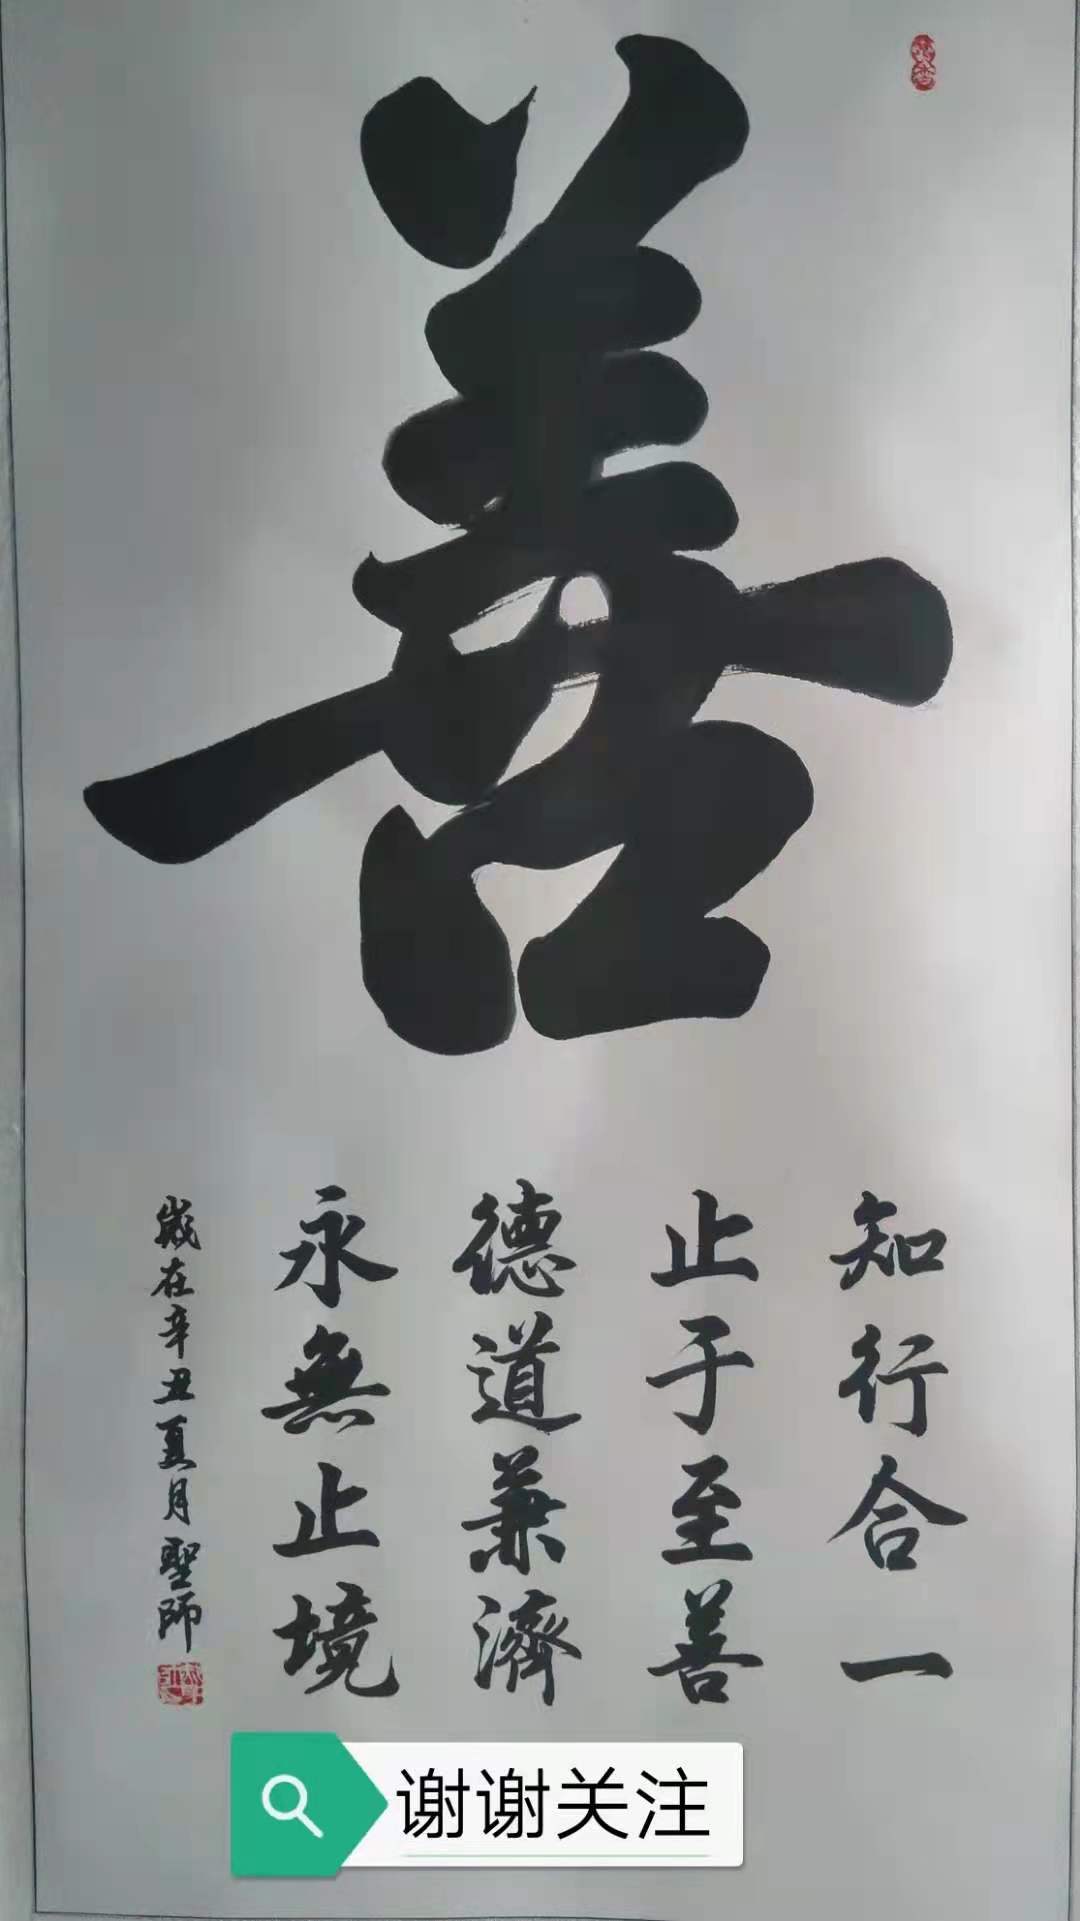 善
知行合一
止于至善
德道兼濟
永無止境
歲在辛丑夏月聖師
谢谢关注